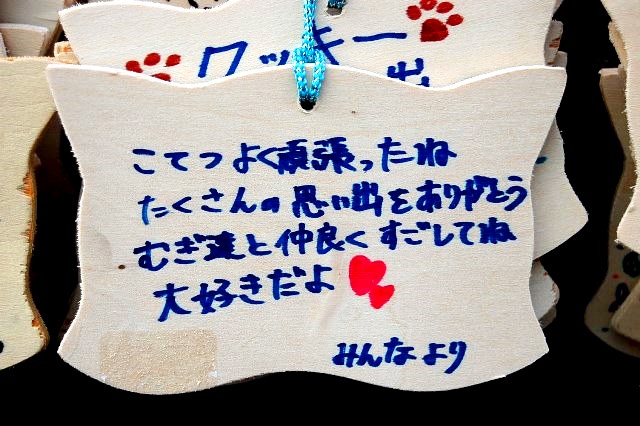 ワッキー
こてつよく頑張ったね
たくさんの思い出をありがとう
むぎ達と仲良くすごしてね
大好きだよ
みんなより